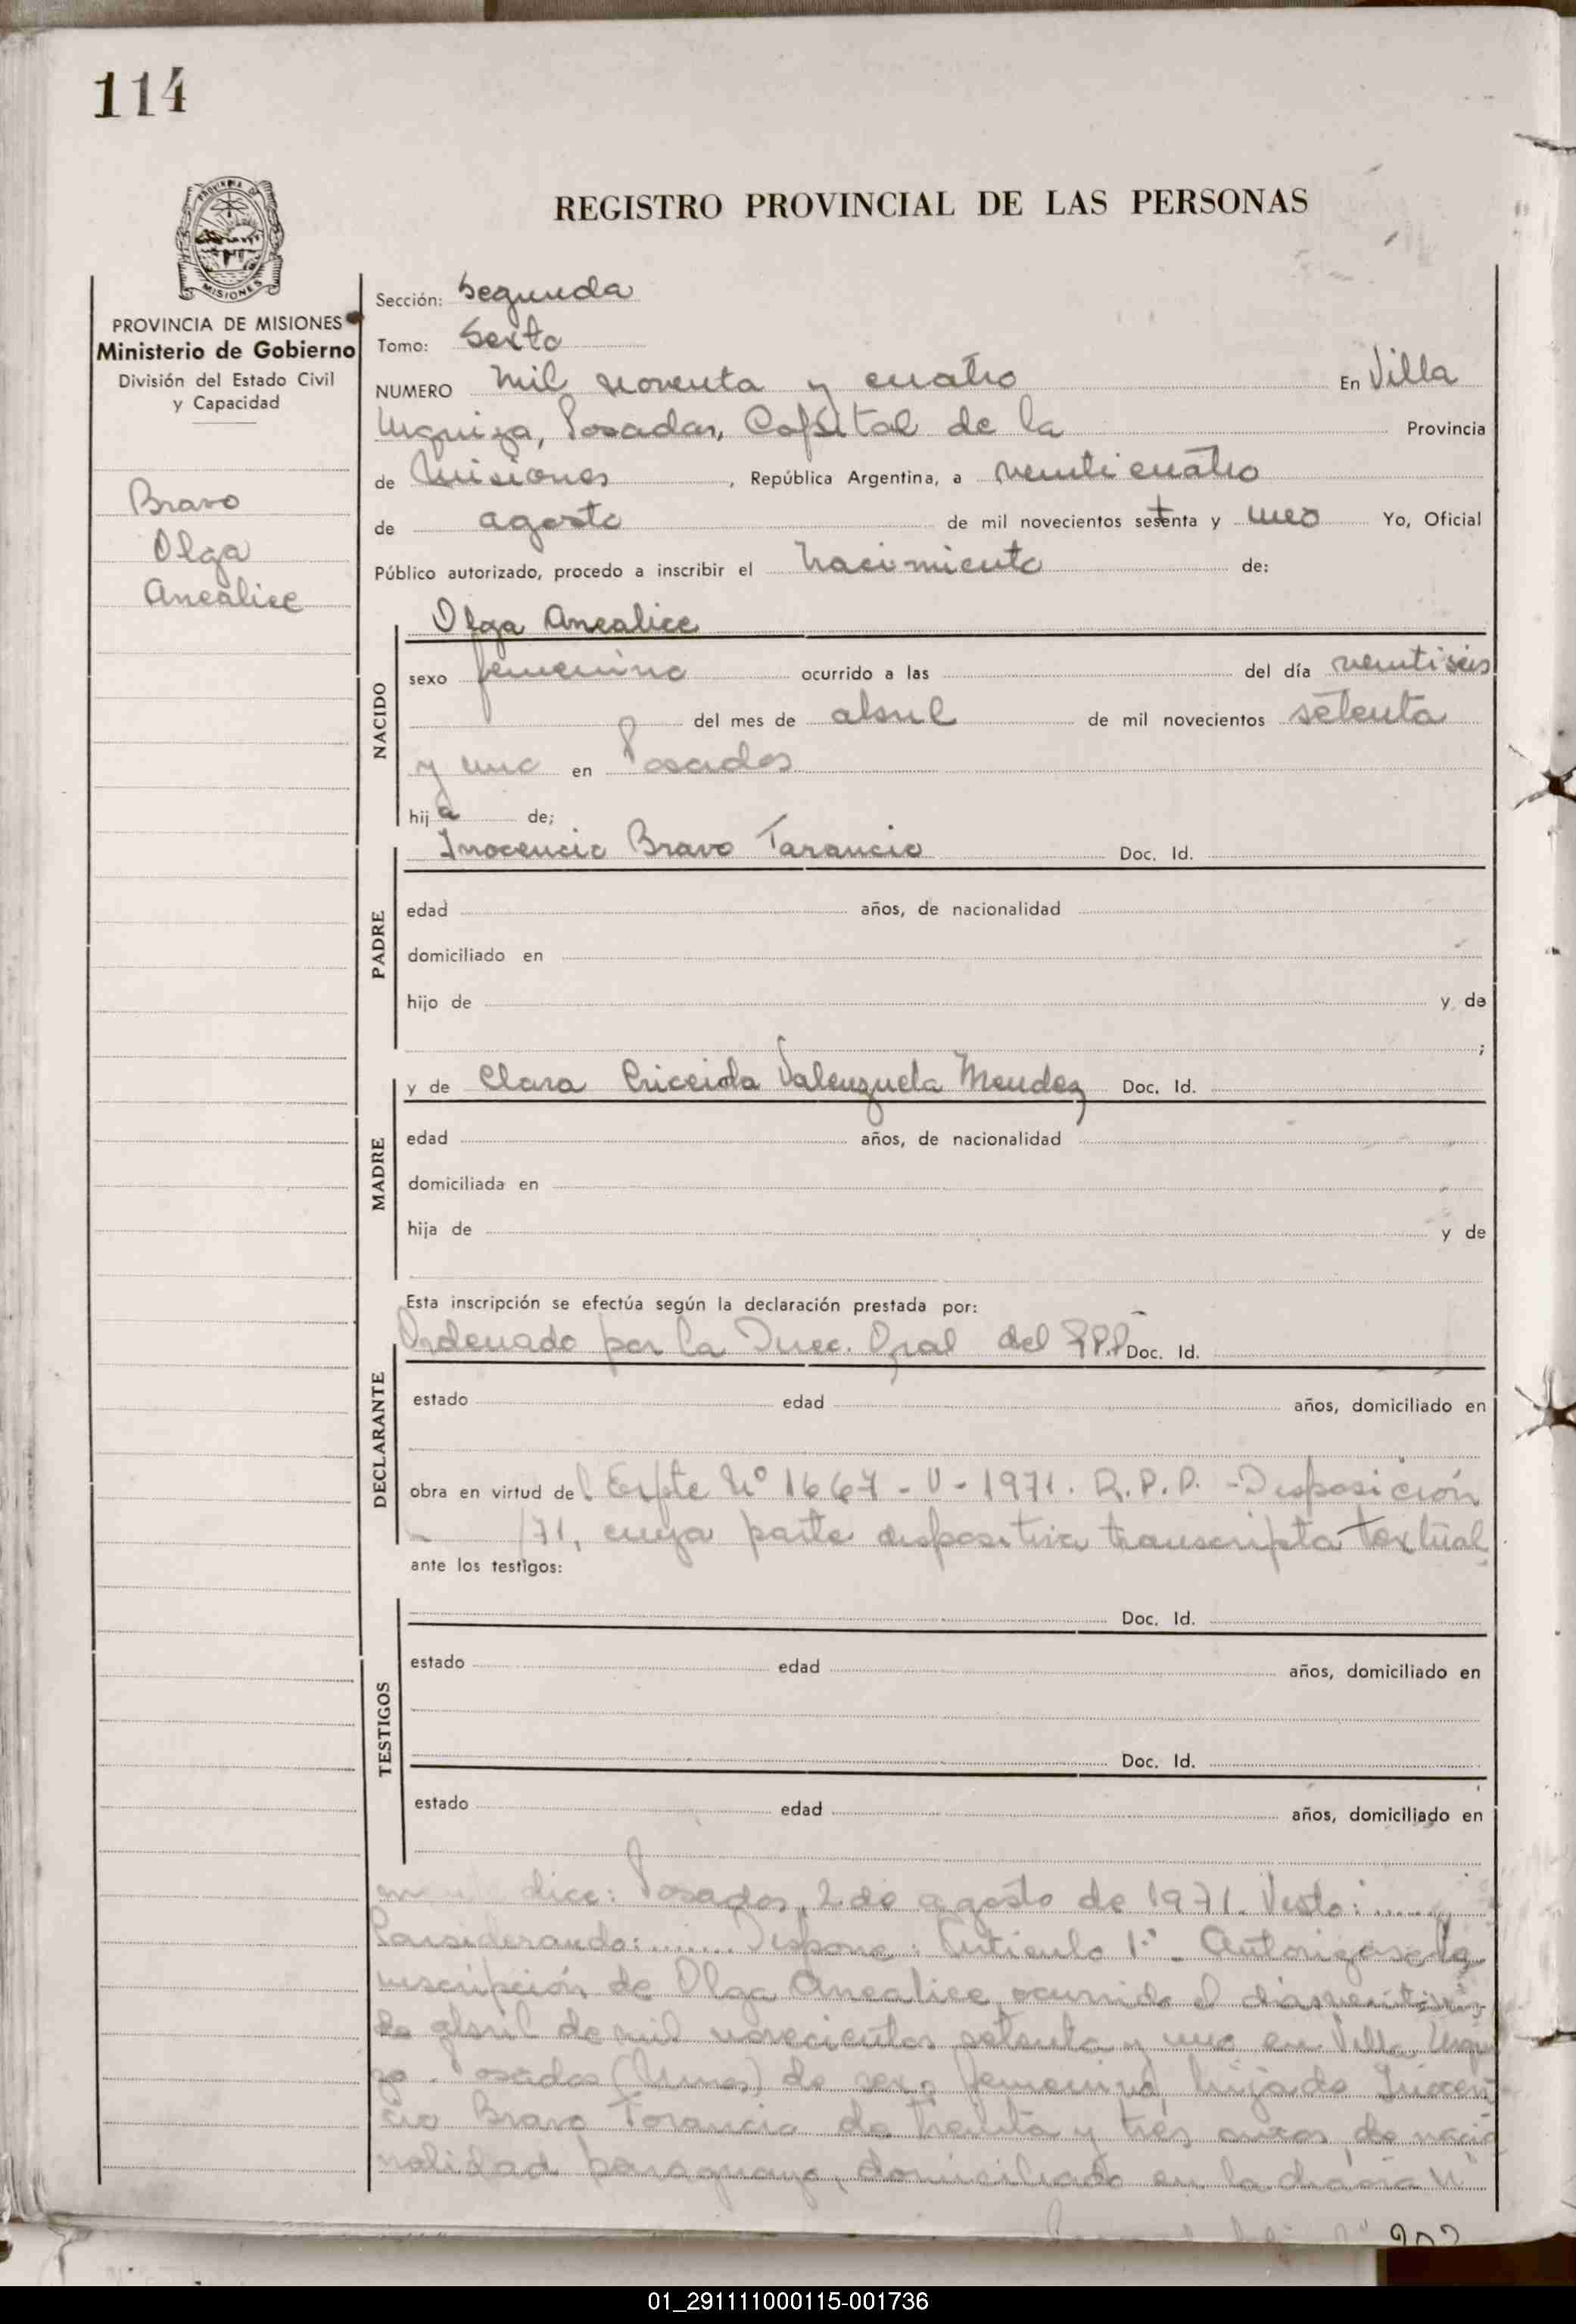 114
REGISTRO PROVINCIAL DE LAS PERSONAS
PROVINCIA DE MISIONES
Ministerio de Gobierno
División del Estado Civil
y Capacidad
Bravo
Olga
Anealice
Sección: Segunda
Tomo: Sexto
NUMERO mil noventa y cuatro En Villa
Urquiza, Posadas, Capital de la Provincia
de Misiones, República Argentina, a veinticuatro
de agosto de mil novecientos setenta y uno Yo, Oficial
Público autorizado, procedo a inscribir el nacimiento de:
NACIDO
Olga Anealice
sexo femenino ocurrido a las del día veintiseis
del mes de abril de mil novecientos setenta
y uno en Posadas
hija de;
PADRE
Inocencio Bravo Tarancio Doc. Id.
edad años, de nacionalidad
domiciliado en
hijo de y de
;
MADRE
y de Clara Valenzuela Mendez Doc. Id.
edad años, de nacionalidad
domiciliada en
hija de y de
Esta inscripción se efectúa según la declaración prestada por:
DECLARANTE
Ordenado por la Direc. Gral del R.P.P. Doc. Id.
estado edad años, domiciliado en
obra en virtud del Expte Nº 1667-V-1971. R.P.P. - Disposición
/71, cuya parte dispositiva transcripta textual
ante los testigos:
TESTIGOS
Doc. Id.
estado edad años, domiciliado en
Doc. Id.
estado edad años, domiciliado en
dice: Posadas, 2 de agosto de 1971. Visto: .......
Considerando: ....... Dispone: Articulo 1º - Autorizase la
inscripción de Olga Anealice ocurrido el dia veintiseis
de abril de mil novecientos setenta y uno en Villa Urqui
za - Posadas (Mnes) de sexo femenino, hija de Inocen
cio Bravo Tarancio de treinta y tres años, de nacio
nalidad paraguaya, domiciliado en la chacra Nº
202
01_291111000115-001736